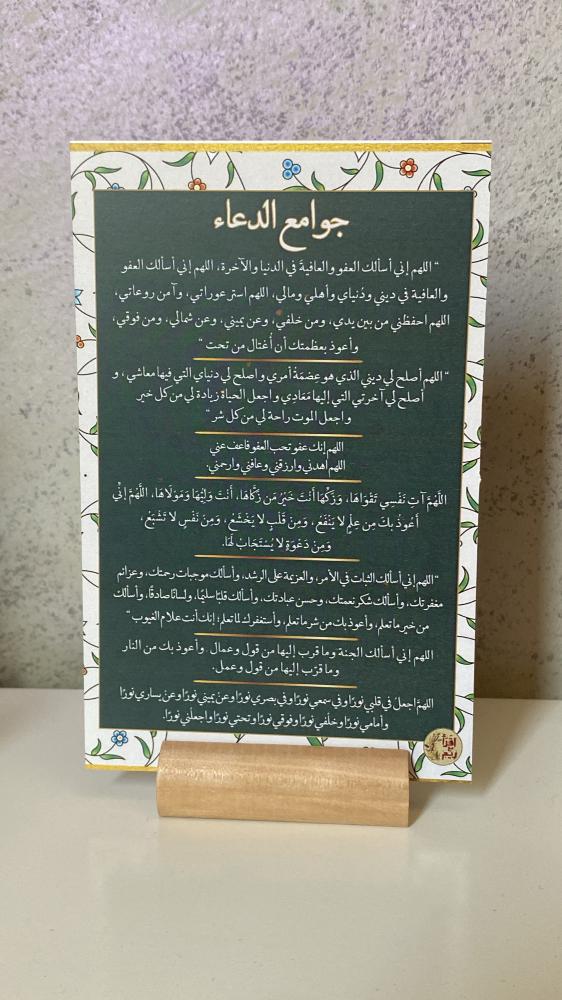 جوامع الدعاء
“ اللهم إني أسألك العفو والعافيةَ في الدنيا والآخرة، اللهم إني أسألك العفو
والعافية في ديني ودُنياي وأهلي ومالي، اللهم استر عوراتي، وآمن روعاتي،
اللهم احفظني من بين يدي، ومن خلفي، وعن يميني، وعن شمالي، ومن فوقي،
وأعوذ بعظمتك أن أُغتال من تحت “
“ اللهم أصلح لي ديني الذي هو عِصْمَةُ أمري واصلح لي دنياي التي فيها معاشي ، و
أصلح لي آخرتي التي إليها مَعَادِي واجعل الحياة زيادة لي من كل خير
واجعل الموت راحة لي من كل شر “
اللهم إنك عفو تحب العفو فاعف عني
اللهم أهدني وارزقني وعافني وارحمني.
اللَّهُمَّ آتِ نَفْسِي تَقْوَاهَا، وَزَكِّهَا أَنْتَ خَيْرُ مَن زَكَّاهَا، أَنْتَ وَلِيُّهَا وَمَوْلَاهَا، اللَّهُمَّ إنِّي
أَعُوذُ بكَ مِن عِلْمٍ لا يَنْفَعُ ، وَمِنْ قَلْبٍ لا يَخْشَعُ ، وَمِنْ نَفْسٍ لا تَشْبَعُ ،
وَمِنْ دَعْوَةٍ لا يُسْتَجَابُ لَهَا.
“اللهم إني أسألك الثبات في الأمر، والعزيمة على الرشد، وأسألك موجبات رحمتك، وعزائم
مغفرتك، وأسألك شكر نعمتك، وحسن عبادتك، وأسألك قلبًا سليمًا، ولسانًا صادقًا، وأسألك
من خير ما تعلم، وأعوذ بك من شر ما تعلم، وأستغفرك لما تعلم؛ إنك أنت علام الغيوب“
اللهم إني أسألك الجنة وما قرب إليها من قول وعمال وأعوذ بك من النار
وما قرّب إليها من قول وعمل.
اللهمّ اجعلْ في قلبي نورًا وفي سمعي نورًا وفي بصري نورًا وعنْ يميني نورًا وعنْ يساري نورًا
وأمامي نورًا وخلْفي نورًا وفوقي نورًا وتحتي نورًا واجعلْني نورًا.
إقرأ
مع
ريم